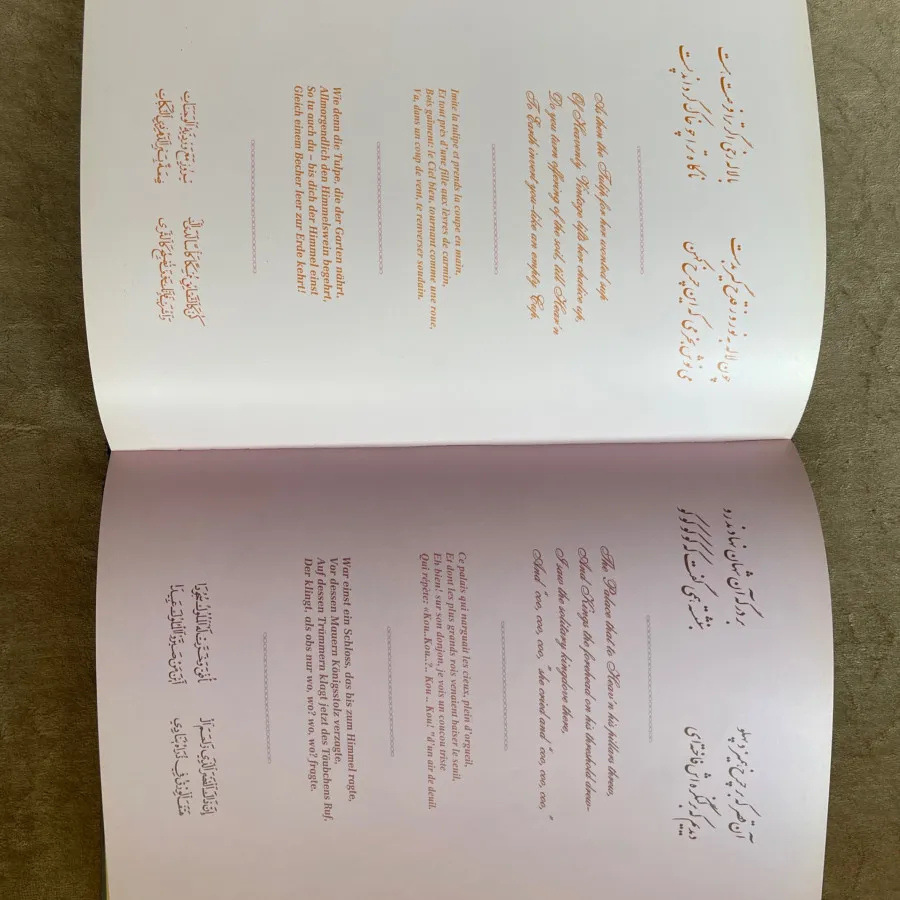 چون لاله به نوروز قدح گیر بدست
با لاله رخی اگر ترا فرصت هست
می نوش بخرمی که این چرخ کهن
ناگاه ترا چو خاک گرداند پست
As then the Tulip for her wonted sup
Of Heavenly Vintage lifts her chalice up,
Do you turn offering of the soil, till Heav'n
To Earth invert you-like an empty Cup.
Imite la tulipe et prends la coupe en main,
Et tout près d'une fille aux lèvres de carmin,
Bois gaîment: le Ciel bleu, tournant comme une roue,
Va, dans un coup de vent, te renverser soudain.
Wie denn die Tulpe, die der Garten nährt,
Allmorgendlich den Himmelswein begehrt,
So tu auch du – bis dich der Himmel einst
Gleich einem Becher leer zur Erde kehrt!
آن قصر که بر چرخ همیزد پهلو
بر درگه آن شهان نهادندی رو
دیدیم که بر کنگره اش فاخته ای
بنشسته همی گفت که کوکوکوکو
The Palace that to Heav'n his pillars threw,
And Kings the forehead on his threshold drew-
I saw the solitary kingdove there,
And "coo, coo, coo," she cried and "coo, coo, coo,"
Ce palais qui narguait les cieux, plein d'orgueil,
Et dont les plus grands rois venaient baiser le seuil,
Eh bien! sur son donjon, je vois un coucou triste
Qui répète: «Kou..Kou..?.. Kou .. Kou! "d'un air de deuil.
War einst ein Schloss, das bis zum Himmel ragte,
Vor dessen Mauern Königsstolz verzagte,
Auf dessen Trümmern klagt jetzt des Täubchens Ruf,
Der klingt, als obs nur wo, wo? wo, wo? fragte.